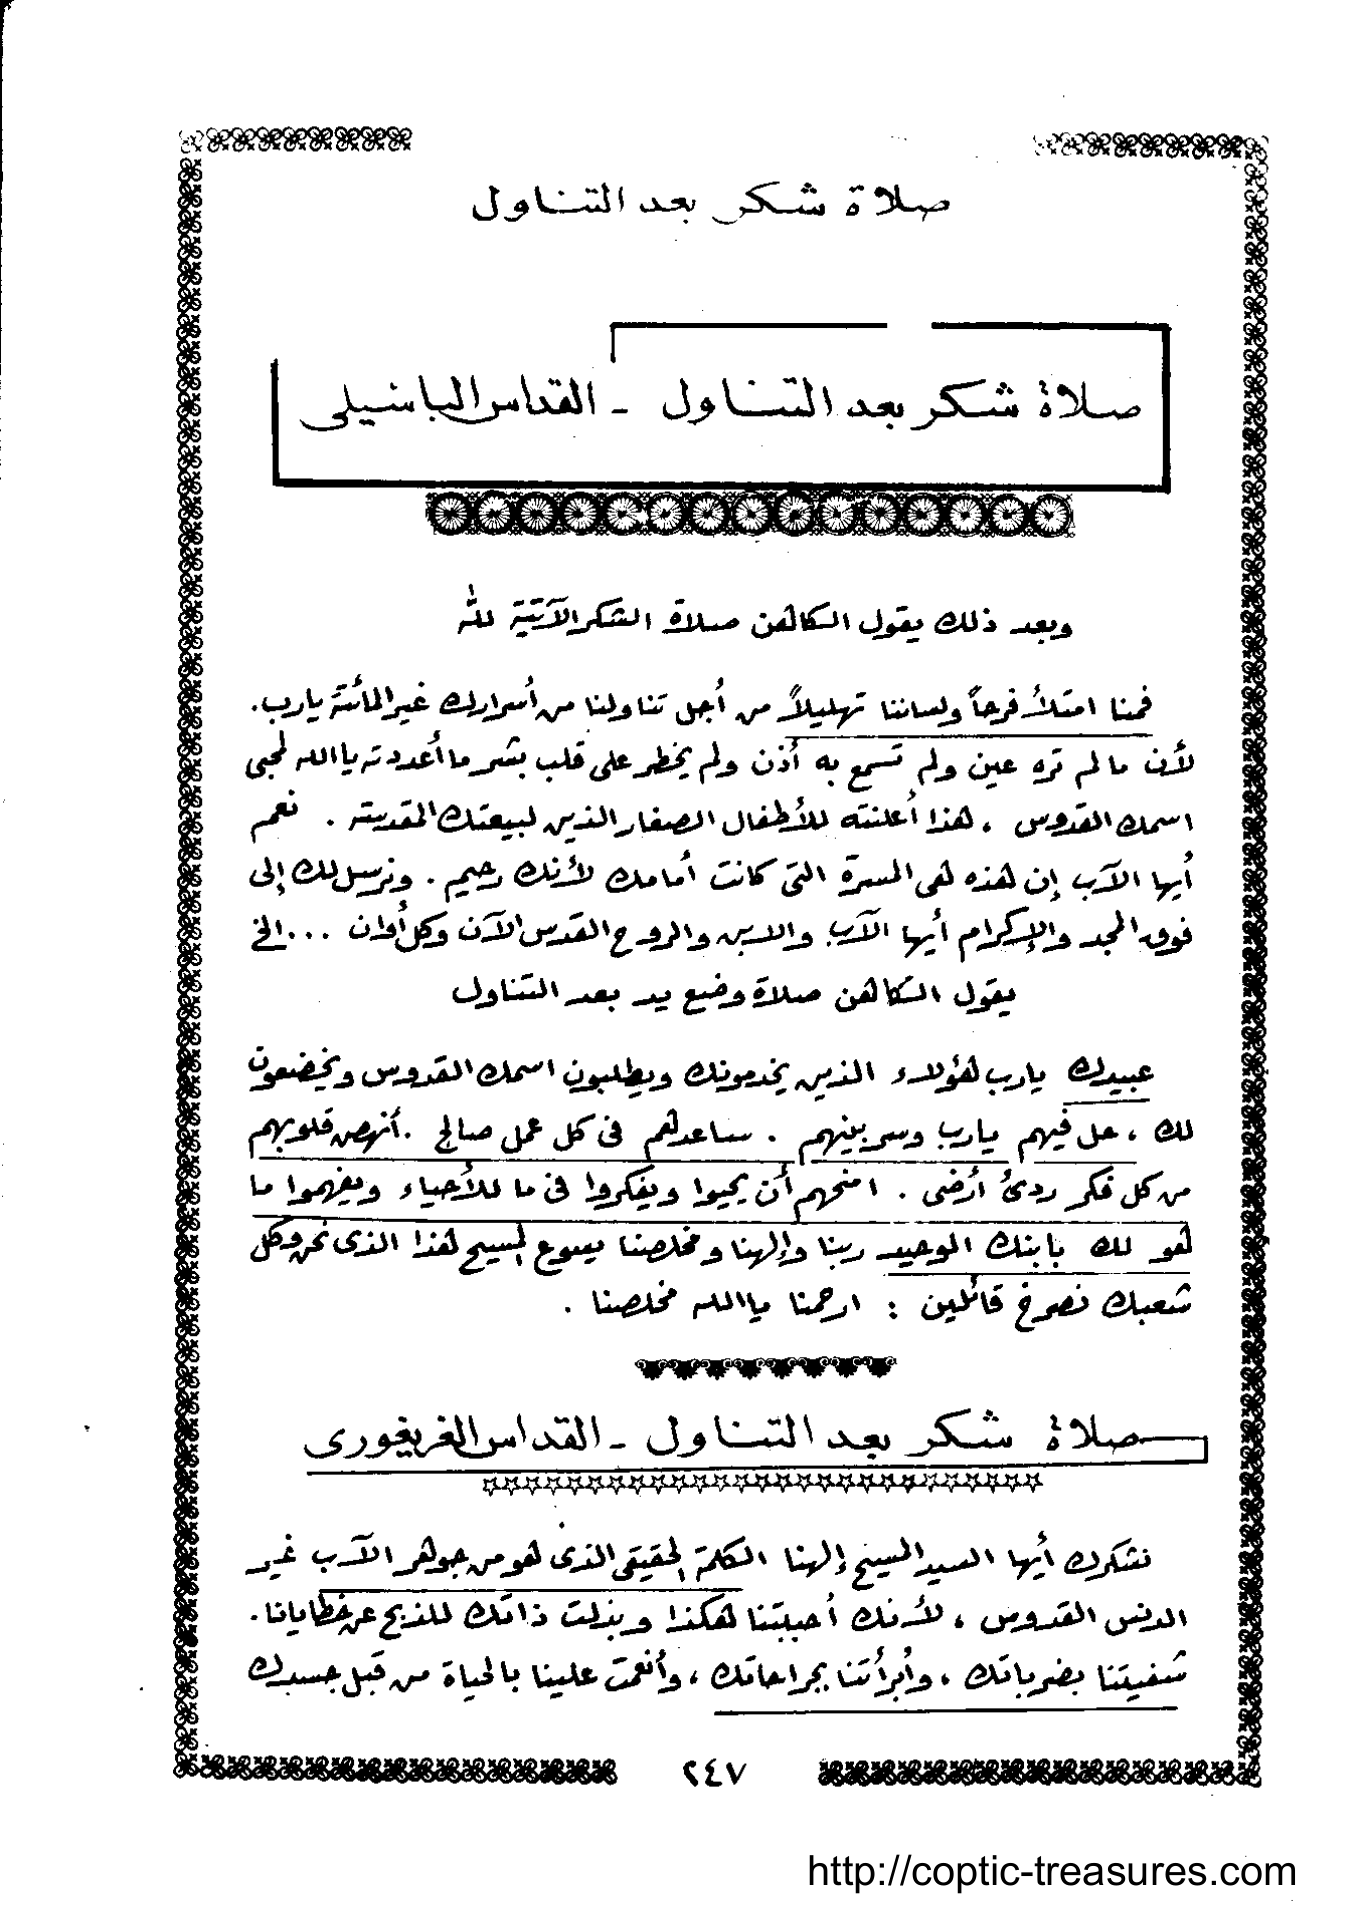 صلاة شكر بعد التناول
صلاة شكر بعد التناول - القداس الباسيلى
وبعد ذلك يقول الكاهن صلاة الشكر الآتية لله
فمنا امتلأ فرحاً ولساننا تهليلاً من أجل تناولنا من أسرارك غير المائتة يارب.
لأن مالم تره عين ولم تسمع به أذن ولم يخطر على قلب بشر ما أعددته ياالله لمحبى
اسمك القدوس ، هذا أعلنته للأطفال الصغار الذين لبيعتك المقدسة . نعم
أيها الآب إن هذه هى المسرة التى كانت أمامك لأنك رحيم . ونرسل لك إلى
فوق المجد والإكرام أيها الآب والابن والروح القدس الآن وكل أوان ...الخ
يقول الكاهن صلاة وضع يد بعد التناول
عبيدك يارب هؤلاء الذين يخدمونك ويطلبون اسمك القدوس ويخضعون
لك ، حل فيهم يارب وسر بينهم . ساعدهم فى كل عمل صالح . أنهض قلوبهم
من كل فكر ردئ أرضى . امنحهم أن يحيوا ويفكروا فى ما للأحياء ويفهموا ما
هو لك بابنك الوحيد ربنا وإلهنا ومخلصنا يسوع المسيح هذا الذى نحن وكل
شعبك نصرخ قائلين : ارحمنا ياالله مخلصنا .
صلاة شكر بعد التناول - القداس الغريغورى
نشكرك أيها السيد المسيح إلهنا الكلمة الحقيقى الذى هو من جوهر الآب غير
الدنس القدوس ، لأنك أحببتنا هكذا وبذلت ذاتك للذبح عن خطايانا .
شفيتنا بضرباتك ، وأبرأتنا بجراحاتك ، وأنعمت علينا بالحياة من قبل جسدك
٢٤٧
http://coptic-treasures.com